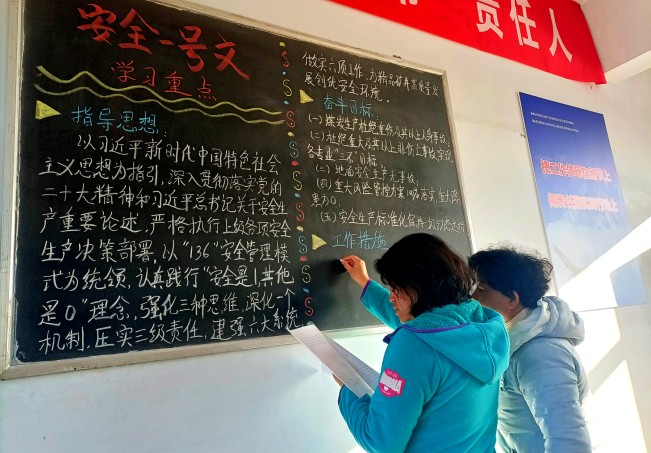 责任人
安全一号文
学习重点
指导思想:
以习近平新时代中国特色社会
主义思想为指引,深入贯彻落实党的
二十大精神和习近平总书记关于安全生
产重要论述,严格执行上级各项安全
生产决策部署,以“136”安全管理模
式为统领,认真践行“安全是1,其他
是0”理念,强化三种思维,深化一个
机制,压实三级责任,建强六大系统
做实六项工作,为精品矿井高质量发
展创优安全环境.
奋斗目标:
(一)煤炭生产杜绝重伤及其以上人身事故;
(二)杜绝重大及其以上非伤亡事故,实现
各专业“三不”目标
(三)地面安全生产无事故,
(四)重大风险管控方案100%落实,重大隐
患为0,
(五)安全生产标准化保持一级
工作措施